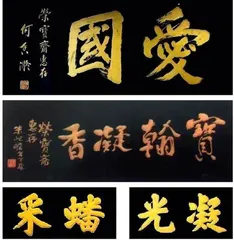 愛國
榮寶齋惠存
何香凝
寶翰凝香
榮寶齋
惠存
凝光
蟠采